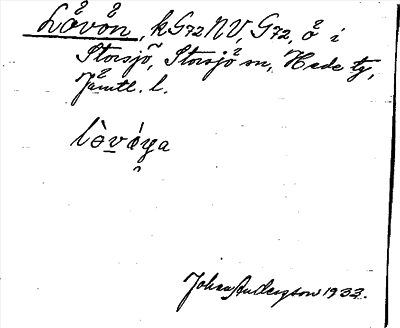 Lövön, k G72 NV, G72, ö i
Storsjö, Storsjö sn, Hede tg,
Jämtl. l.
lòvǿya
Johan Anderzson 1933.